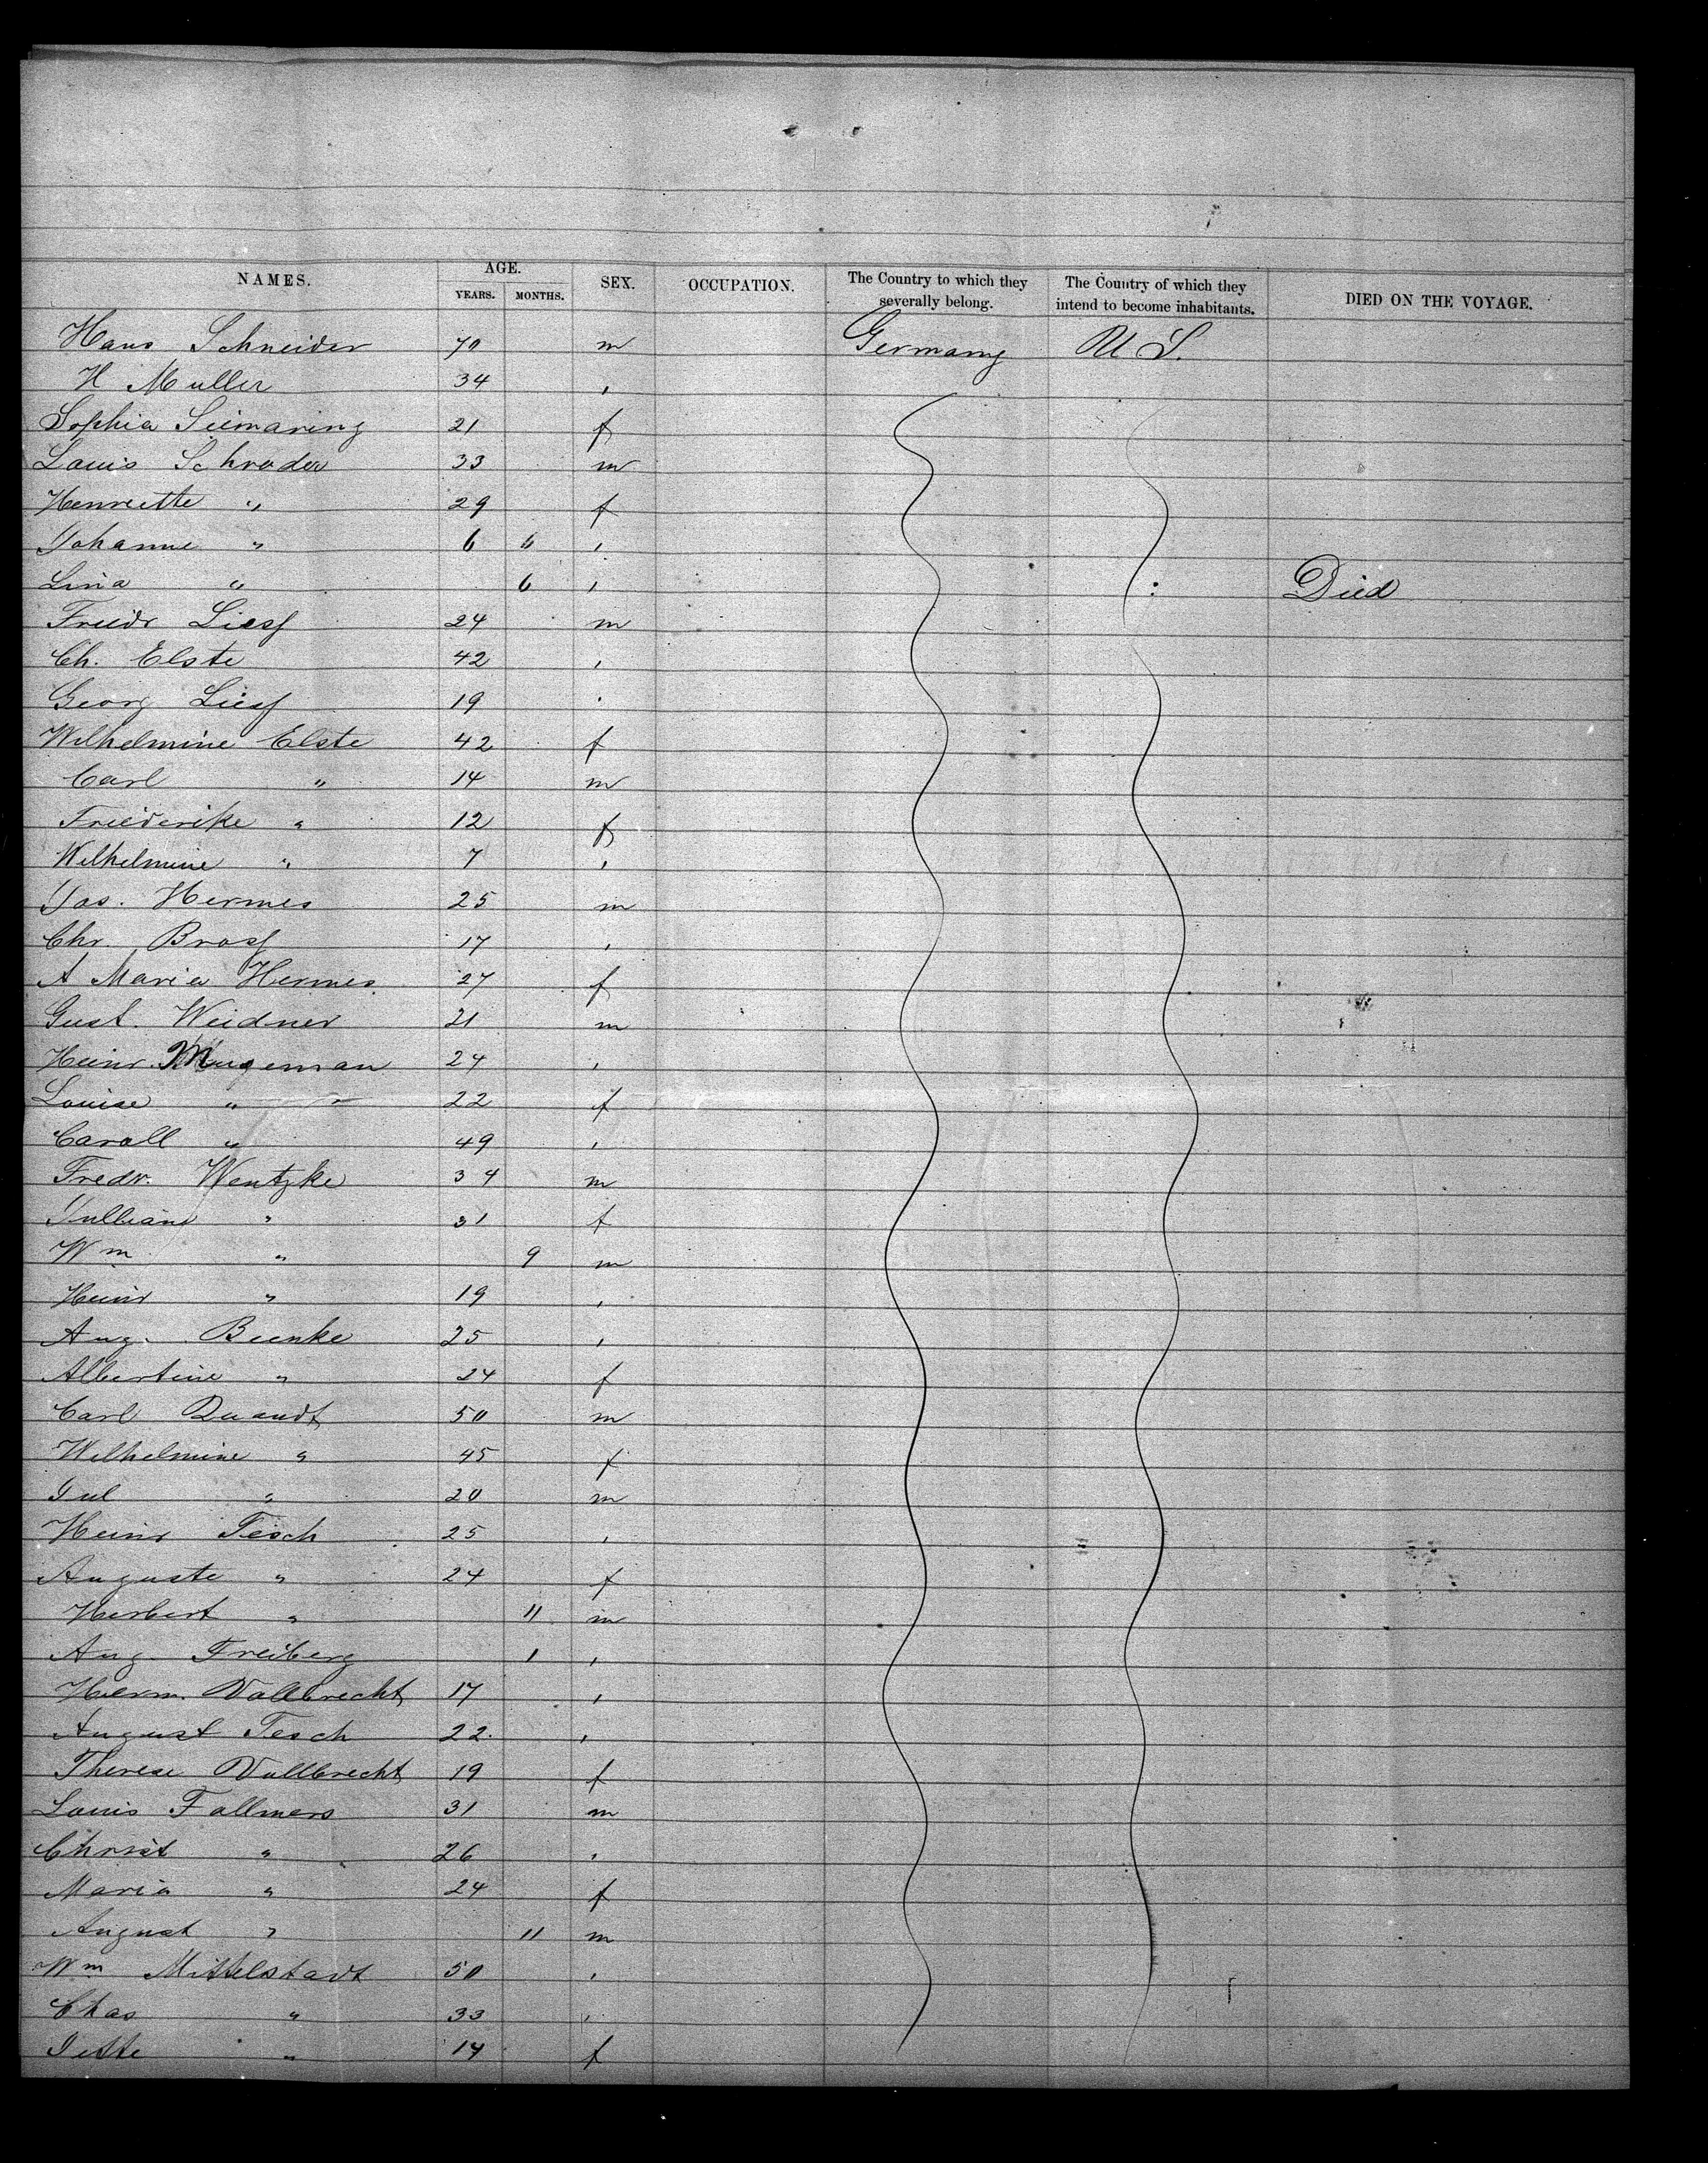 NAMES. AGE. YEARS. MONTHS. SEX. OCCUPATION. The Country to which they severally belong. The Country of which they intend to become inhabitants. DIED ON THE VOYAGE.
Hans Schneider 70 m Germany U S.
H Muller 34 ,
Sophia Siemaring 21 f
Louis Schrader 33 m
Henriette " 29 f
Johanne " 6 6 ,
Lina " 6 , Died
Friedr Liess 24 m
Ch. Elste 42 ,
Georg Liess 19 ,
Wilhelmine Elste 42 f
Carl " 14 m
Friederike " 12 f
Wilhelmine " 7 ,
Jos. Hermes 25 m
Chr Bross 17 ,
A Maria Hermes 27 f
Gust. Weidner 21 m
Heinr. 24 ,
Louise " 22 f
Caroll " 49 ,
Fredr. Wentzke 34 m
Julliane " 31 f
Wm " 9 m
Heinr " 19 ,
Aug. Beenke 25 ,
Albertine " 24 f
Carl Quandt 50 m
Wilhelmine " 45 f
Jul " 20 m
Heinr Tesch 25 ,
Auguste " 24 f
Herbert " 11 m
Aug. Freiberg 1 ,
Herm. Vollbrecht 17 ,
August Tesch 22 ,
Therese Vollbrecht 19 f
Louis Follmers 31 m
Christ " 26 ,
Maria " 24 f
August " 11 m
Wm Mittelstadt 50 ,
Chas " 33 ,
Jette " 14 f